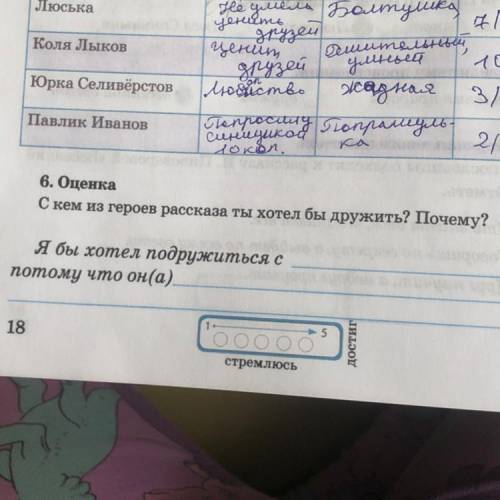 Люська Не умела Болтушка 7/
ценить
друзей
Коля Лыков Ценит Решительный,
друзей умный 10
Юрка Селивёрстов жадная 3/
Павлик Иванов Попросилу Попрашуль- 2/
синицкой ка
10 коп.
6. Оценка
С кем из героев рассказа ты хотел бы дружить? Почему?
Я бы хотел подружиться с
потому что он(а)
18
1 5
стремлюсь
достиг